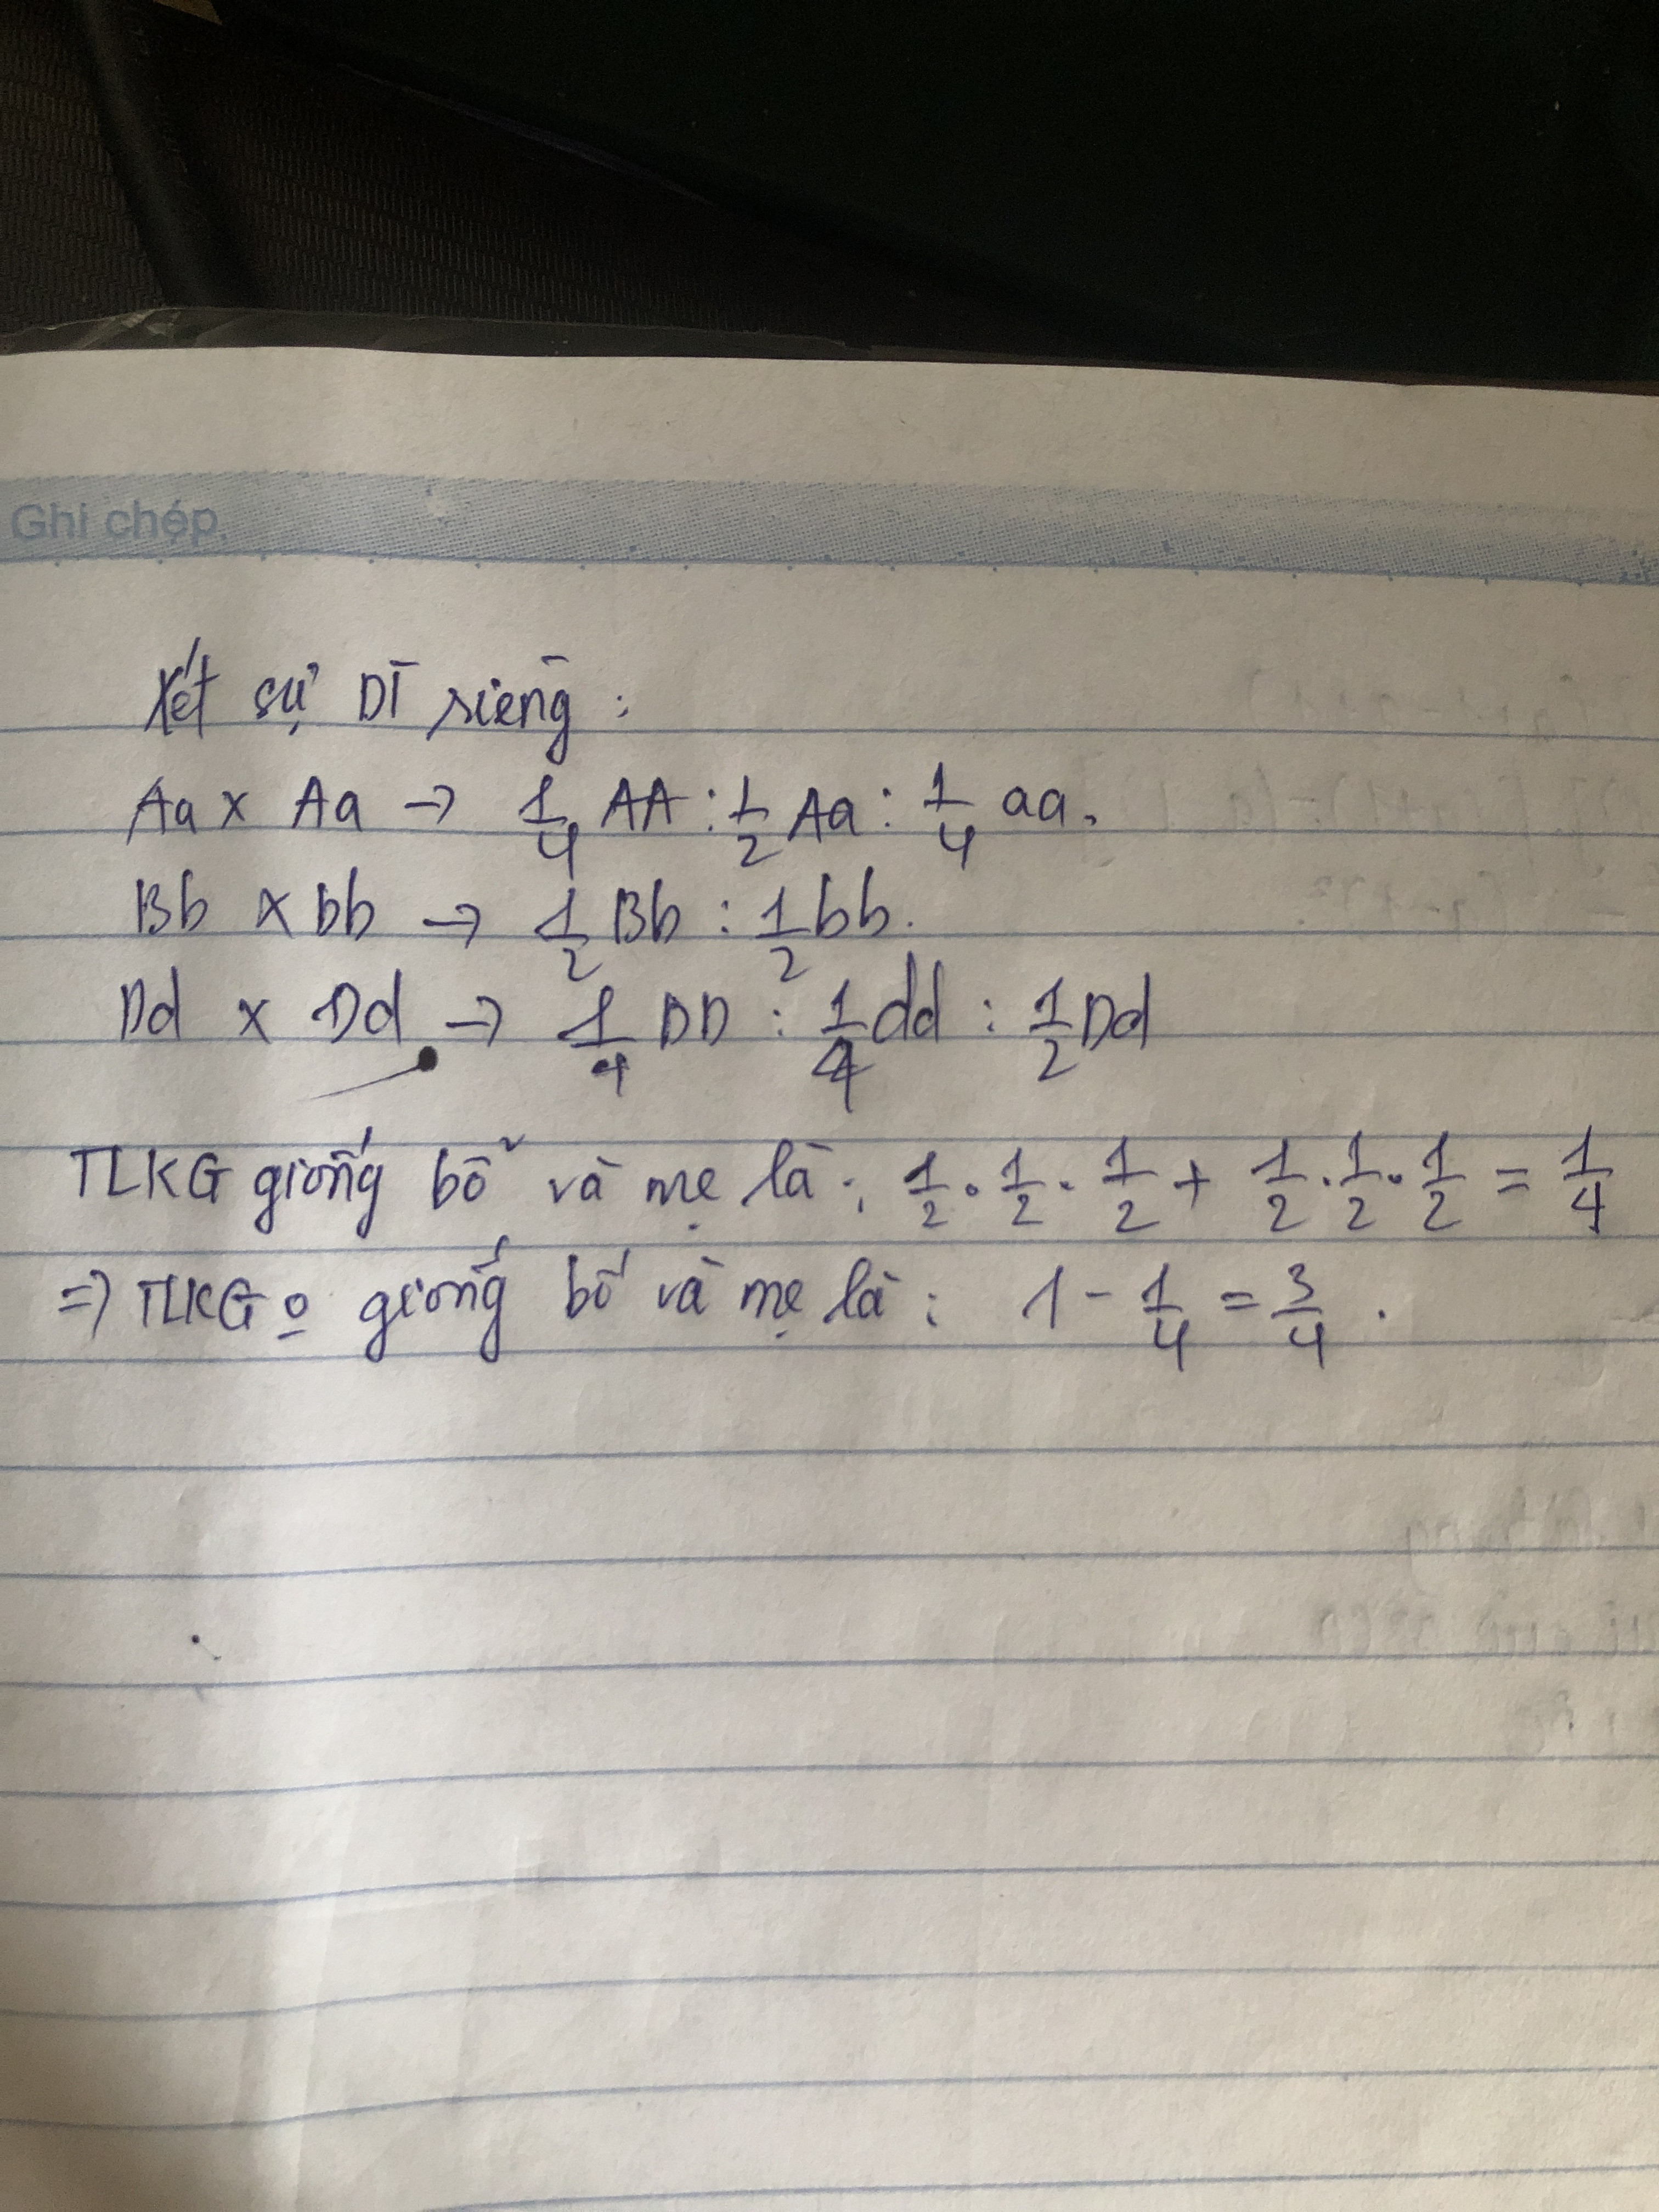 Ghi chép.
Xét sự DT riêng :
Aa x Aa → 1/4 AA : 1/2 Aa : 1/4 aa.
Bb x bb → 1/2 Bb : 1/2 bb.
Dd x Dd → 1/4 DD : 1/4 dd : 1/2 Dd
TLKG giống bố và mẹ là : 1/2 . 1/2 . 1/2 + 1/2 . 1/2 . 1/2 = 1/4
=> TLKG o giống bố và mẹ là : 1 - 1/4 = 3/4 .